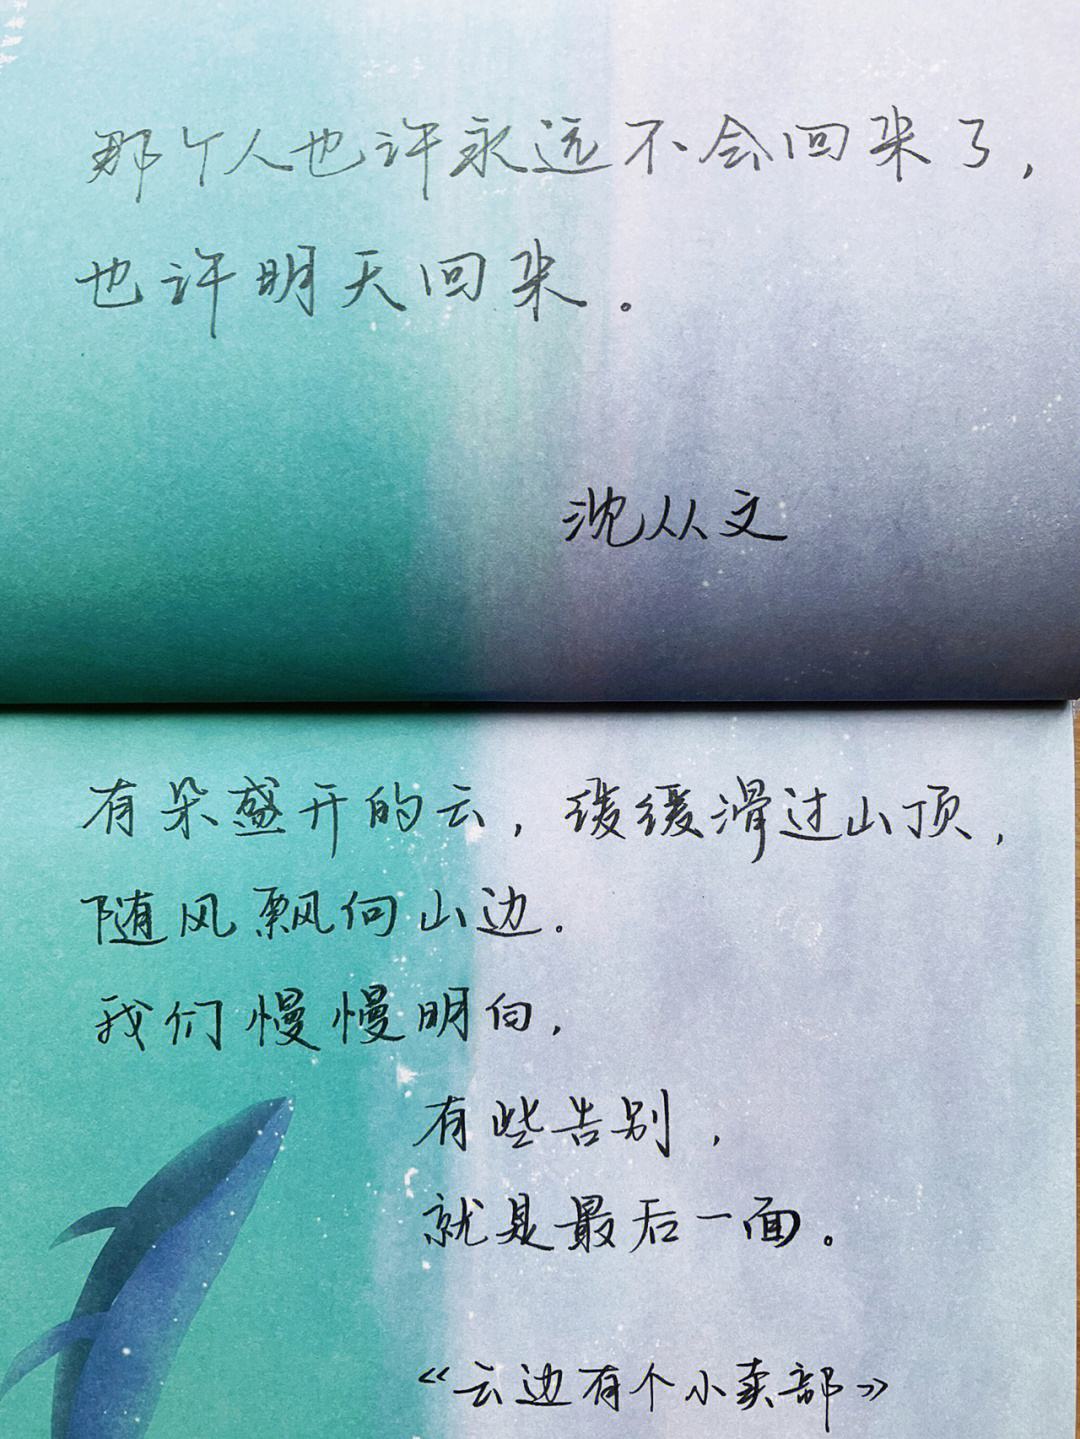 那个人也许永远不会回来了，
也许明天回来。
沈从文
有朵盛开的云，缓缓滑过山顶，
随风飘向山边。
我们慢慢明白，
有些告别，
就是最后一面。
《云边有个小卖部》